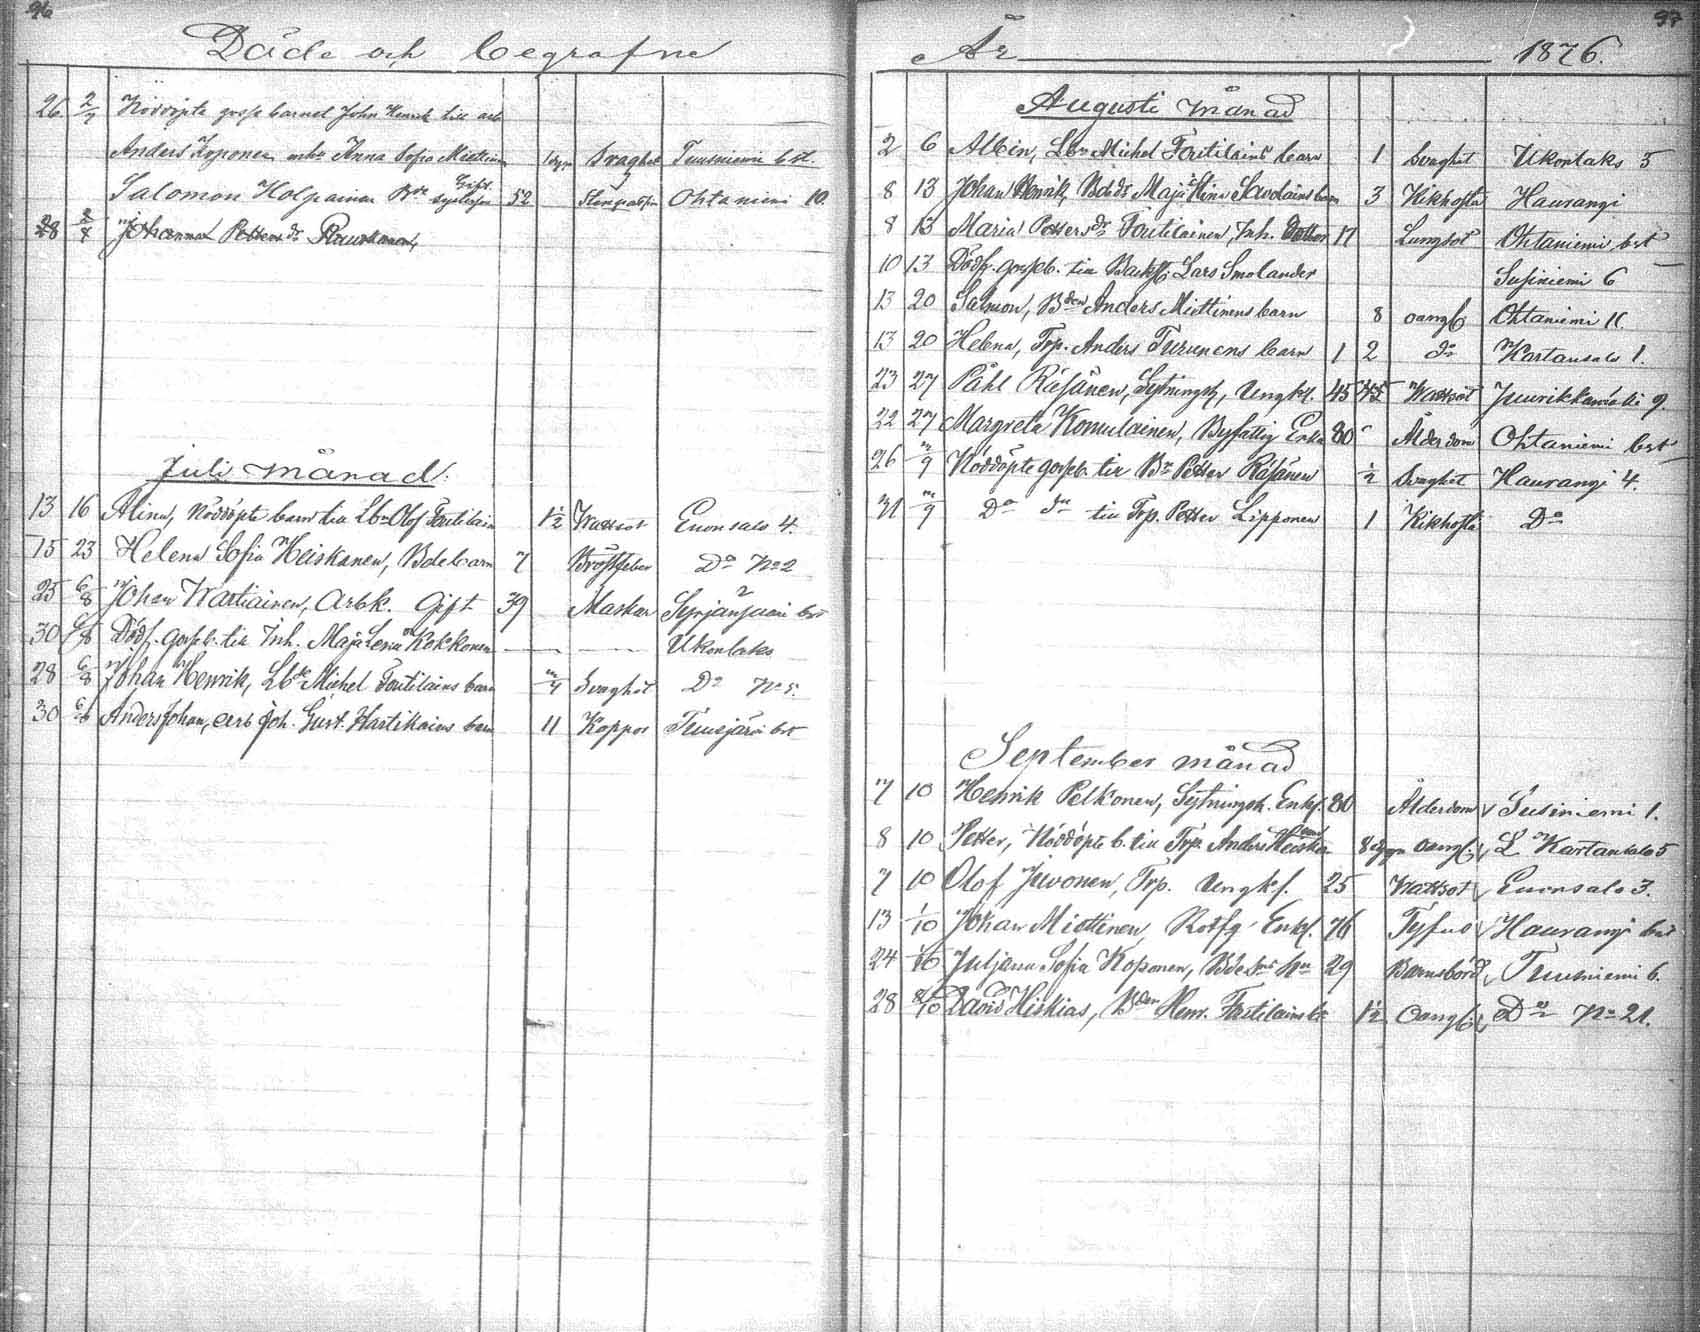 96
Döde och begrafne
26 2/7 Nöddöpte gosse barnet John Henrik till arb
Anders Koponen och Anna Sofia Miettinen Svaghet Tuusniemi bst.
Salomon Holpainen Gift 52 Ohtaniemi 10.
28 Johanna Petters dr
Juli månad.
13 16 Alina, Nöddöpte barn till Lbn Olof Toutilain 1½ Wattsot Enonsalo 4.
15 23 Helena Sofia Heiskanen, Bdebarn 7 Bröstfeber Do No 2
25 6/8 Johan Wartiainen, Arbk. Gift 39 Maskar bst
30 6/8 Dödf. gosseb. till Inh. Maja Lena Kokkonen — — Ukonlaks
28 6/8 Johan Henrik, Lbde Michel Toutilains barn Svaghet Do No 5.
30 6/8 Anders Johan, arb Joh. Gust. Hartikains barn 11 Koppor Tuusjärvi bst
97
År 1876.
Augusti månad
2 6 Albin, Lbn Michel Toutilains barn 1 Svaghet Ukonlaks 5
8 13 Johan Henrik, Bdedr Maja Stina Savolains barn 3 Kikhosta Haurangi
8 13 Maria Petters dr Toutilainen, Inh. dotter 17 Lungsot Ohtaniemi bst
10 13 Dödf. gosseb. till Lars Smolander Susiniemi 6
13 20 Salmon, Bden Anders Miettinens barn 8 oangf Ohtaniemi 11.
13 20 Helena, Trp. Anders Turunens barn 1 2 do Kartansalo 1.
23 27 Påhl Räsänen, Sytningsh, Ungkl. 45 Wattsot Juurikkamäki 9.
22 27 Margreta Komulainen, Byfattig Enka 80 Ålderdom Ohtaniemi bst
26 Nöddöpte gosseb. till Bn Petter Räsänen ½ Svaghet Haurangi 4.
31 Do do till Trp. Petter Lipponen 1 Kikhosta Do
September månad
7 10 Henrik Pelkonen, Sytningsh. Enkl. 80 Ålderdom Susiniemi 1.
8 10 Petter, Nöddöpte b. till Trp. Anders Heiska nen 8 dygn oangf. L Kartansalo 5
7 10 Olof Juvonen, Trp. Ungkl. 25 Wattsot Enonsalo 3.
13 1/10 Johan Miettinen, Rotfg. Enkl. 76 Tyfus Haurangi bst
24 Juljana Sofia Koponen, hu 29 Barnsbörd Tuusniemi 6.
28 8/10 David Hiskias, Bden Henr. Toutilains br 1½ Oangf. Do No 21.